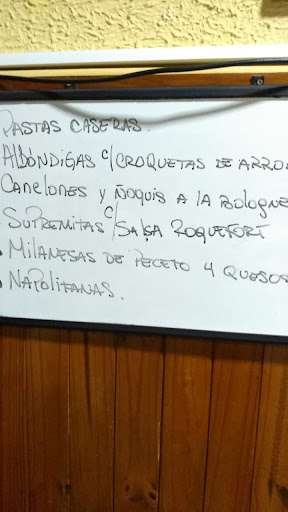 PASTAS CASERAS.
ALBÓNDIGAS C/CROQUETAS DE ARRO
CANELONES Y ÑOQUIS A LA BOLOGNE
SUPREMITAS C/SALSA ROQUEFORT
MILANESAS DE PECETO 4 QUESOS
NAPOLITANAS.